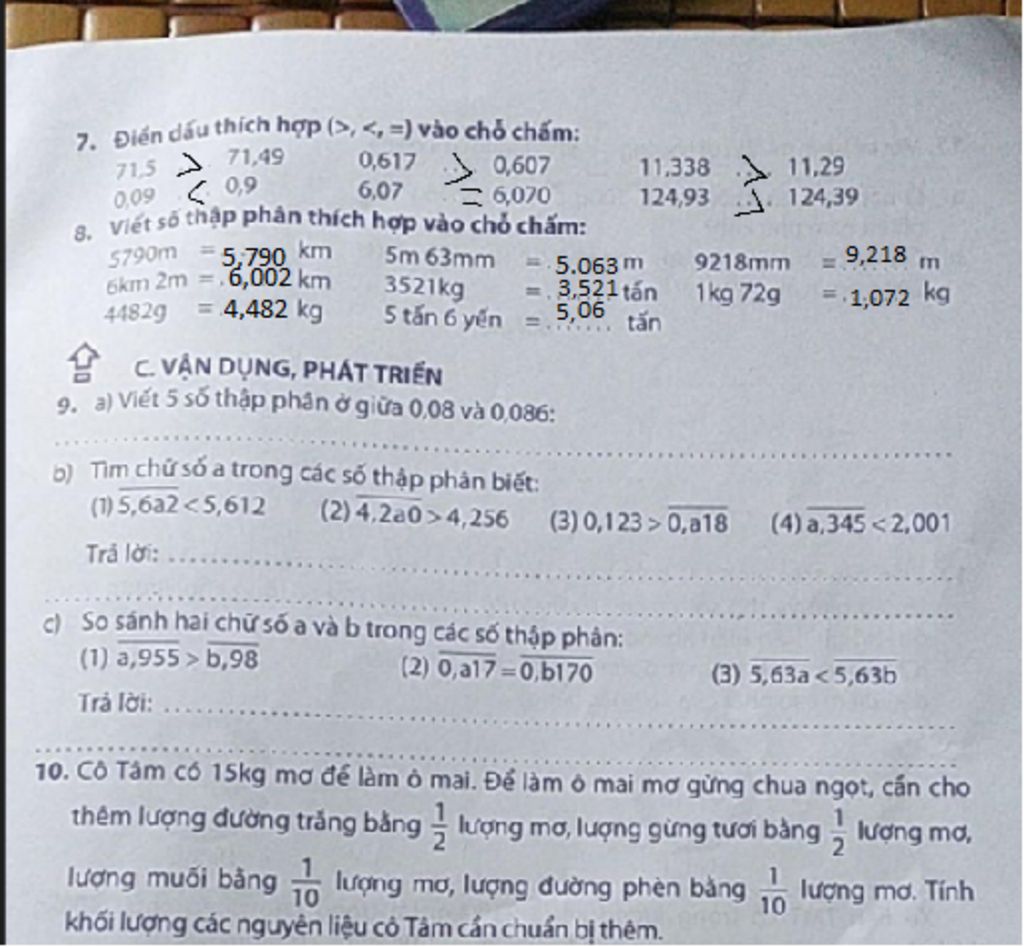 7. Điền dấu thích hợp (>, <, =) vào chỗ chấm:
71,5 > 71,49 0,617 ..>.. 0,607 11,338 ..>.. 11,29
0,09 < 0,9 6,07 = 6,070 124,93 ..>.. 124,39
8. Viết số thập phân thích hợp vào chỗ chấm:
5790m = 5,790 km 5m 63mm = 5.063 m 9218mm = 9,218 m
6km 2m = 6,002 km 3521kg = 3,521 tấn 1kg 72g = 1,072 kg
4482g = 4,482 kg 5 tấn 6 yến = 5,06 tấn
C. VẬN DỤNG, PHÁT TRIỂN
9. a) Viết 5 số thập phân ở giữa 0,08 và 0,086:
b) Tìm chữ số a trong các số thập phân biết:
(1) 5,6a2 < 5,612 (2) 4,2a0 > 4,256 (3) 0,123 > 0,a18 (4) a,345 < 2,001
Trả lời:
c) So sánh hai chữ số a và b trong các số thập phân:
(1) a,955 > b,98 (2) 0,a17 = 0,b170 (3) 5,63a < 5,63b
Trả lời:
10. Cô Tâm có 15kg mơ để làm ô mai. Để làm ô mai mơ gừng chua ngọt, cần cho
thêm lượng đường trắng bằng 1/2 lượng mơ, lượng gừng tươi bằng 1/2 lượng mơ,
lượng muối bằng 1/10 lượng mơ, lượng đường phèn bằng 1/10 lượng mơ. Tính
khối lượng các nguyên liệu cô Tâm cần chuẩn bị thêm.